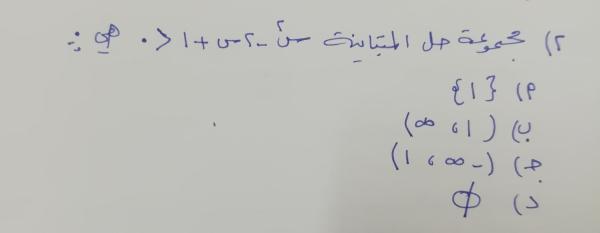 ٢) مجموعة حل المتباينة س² - ٢س + ١ > ٠ هي :
أ) {١}
ب) (١ ، ∞)
جـ) (-∞ ، ١)
د) ϕ